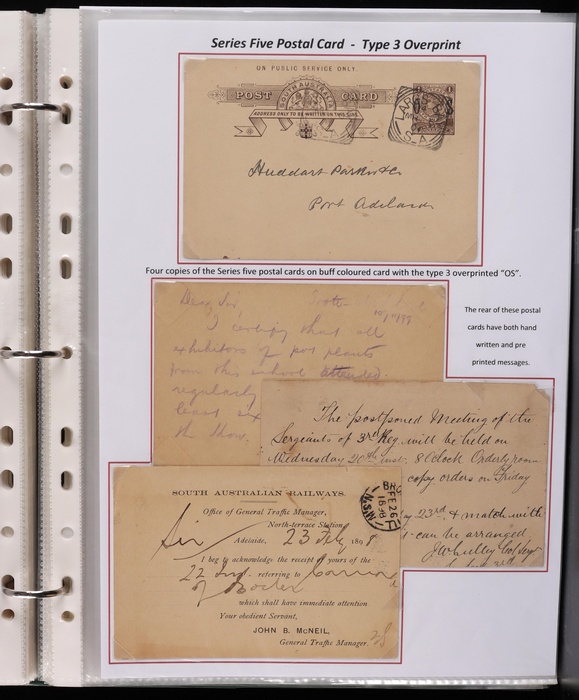 Series Five Postal Card - Type 3 Overprint
ON PUBLIC SERVICE ONLY.
SOUTH AUSTRALIA
POST CARD
ADDRESS ONLY TO BE WRITTEN ON THIS SIDE
S.A.
Huddart Parker & Co
Port Adelaide
Four copies of the Series five postal cards on buff coloured card with the type 3 overprinted "OS".
The rear of these postal
cards have both hand
written and pre
printed messages.
Dear Sir
I certify that all
exhibitors of pot plants
from this school attended
regularly
least six
the Show.
The postponed Meeting of the
Sergeants of 3rd Reg. will be held on
Wednesday 20th inst, 8 o'clock Orderly room
copy orders on Friday
23rd. & match with
can be arranged
SOUTH AUSTRALIAN RAILWAYS.
Office of General Traffic Manager,
North-terrace Station,
Sir Adelaide, 23 Feby 1898
FE 26
1898
N.S.W
I beg to acknowledge the receipt of yours of the
22 Inst. referring to
which shall have immediate attention
Your obedient Servant,
JOHN B. McNEIL,
General Traffic Manager.